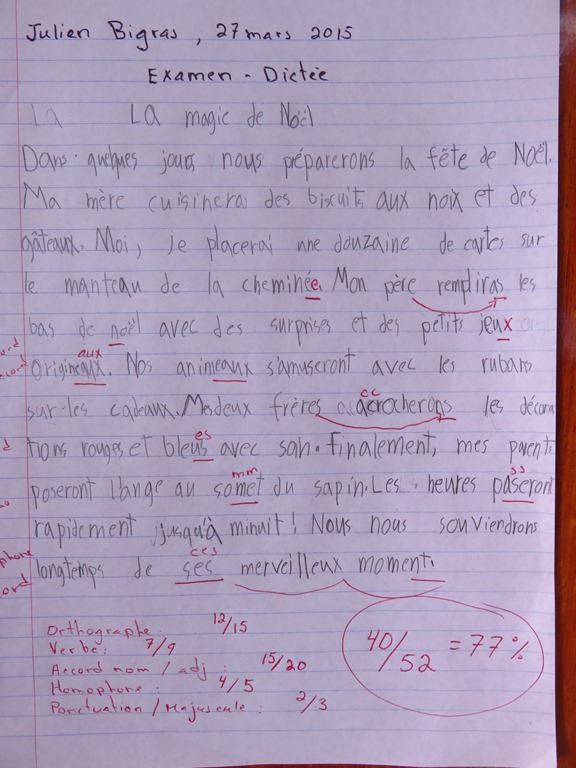 Julien Bigras, 27 mars 2015
Examen - Dictée
La LA magic de Noël
Dans quelques jours nous préparerons la fête de Noël.
Ma mère cuisinera des biscuits aux noix et des
gâteaux. Moi, je placerai une douzaine de cartes sur
le manteau de la cheminée. Mon père rempliras les
bas de noël avec des surprises et des petits jeux
aux
origineaux. Nos animeaux s'amuseront avec les rubans
cc
sur les cadeaux. Mes deux frères acrocherons les décora
es
tions rouges et bleus avec soin. finalement, mes parents
mm ss
poseront l'ange au somet du sapin. Les heures paseront
rapidement jusqu'à minuit! Nous nous souviendrons
ces
longtemps de ses merveilleux moment.
Orthographe: 12/15
Verbe: 7/9
Accord nom / adj: 15/20
Homophone: 4/5
Ponctuation / Majuscule: 2/3
40/52 = 77%